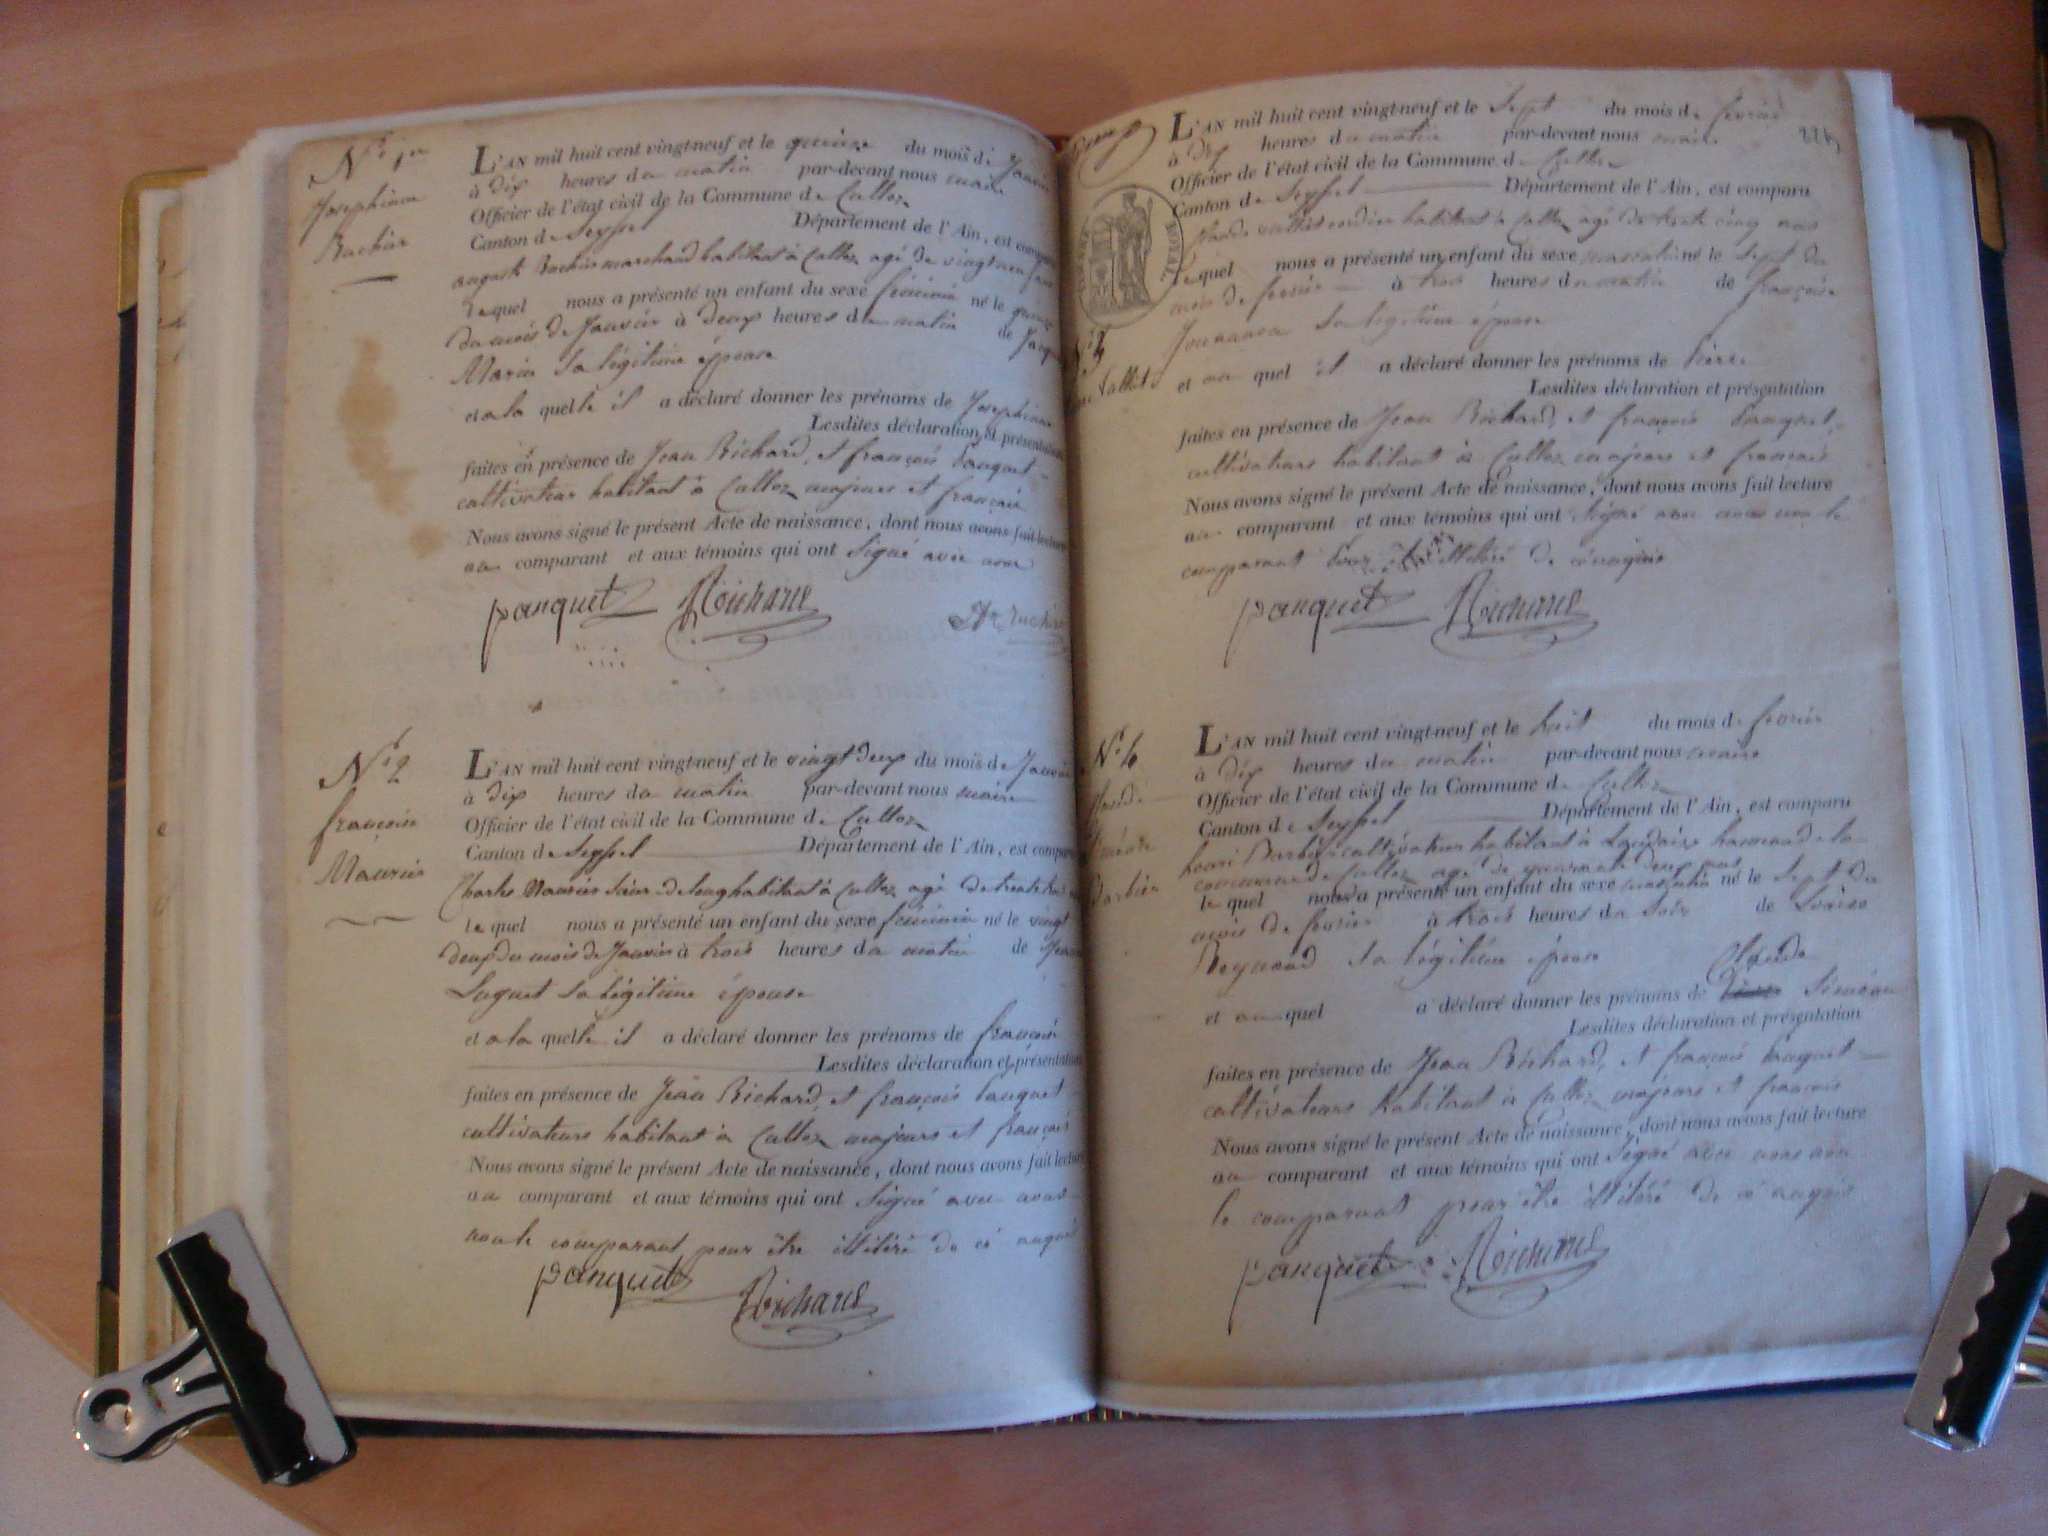 N.º 1er
Josephine
Buchin
L'AN mil huit cent vingt-neuf et le quinze du mois de Janvier
à dix heures du matin par-devant nous maire
Officier de l'état civil de la Commune de Culloz
Canton de Seyssel Département de l'Ain, est comparu
auguste Buchin marchand habitant à Culloz agé de vingt neuf ans
Le quel nous a présenté un enfant du sexe féminin né le quinze
du mois de Janvier à deux heures du matin de
Marie sa légitime épouse
et a la quelle il a déclaré donner les prénoms de Josephine
Lesdites déclaration et présentation
faites en présence de Jean Richard, et françois panquet
cultivateurs habitant à Culloz majeurs et français
Nous avons signé le présent Acte de naissance, dont nous avons fait lecture
au comparant et aux témoins qui ont signé avec nous
panquet Richard
N.º 2
françoise
Maurier
L'AN mil huit cent vingt-neuf et le vingt deux du mois de Janvier
à dix heures du matin par-devant nous maire
Officier de l'état civil de la Commune de Culloz
Canton de Seyssel Département de l'Ain, est comparu
Charles Maurier habitant à Culloz agé de trente
le quel nous a présenté un enfant du sexe féminin né le vingt
deux du mois de Janvier à trois heures du matin de
Luguet sa légitime épouse
et a la quelle il a déclaré donner les prénoms de françoise
Lesdites déclaration et présentation
faites en présence de Jean Richard, et françois panquet
cultivateurs habitant à Culloz majeurs et français
Nous avons signé le présent Acte de naissance, dont nous avons fait lecture
au comparant et aux témoins qui ont signé avec nous
non le comparant pour être illitéré de ce enquis
panquet Richard
L'AN mil huit cent vingt-neuf et le sept du mois de fevrier
à dix heures du matin par-devant nous maire
Officier de l'état civil de la Commune de Culloz
Canton de Seyssel Département de l'Ain, est comparu
habitant à Culloz agé de trente cinq ans
Le quel nous a présenté un enfant du sexe masculin né le sept du
mois de fevrier à trois heures du matin de françoise
sa légitime épouse
et au quel il a déclaré donner les prénoms de pierre
Lesdites déclaration et présentation
faites en présence de Jean Richard, et françois panquet
cultivateurs habitant à Culloz majeurs et français
Nous avons signé le présent Acte de naissance, dont nous avons fait lecture
au comparant et aux témoins qui ont signé avec nous non le
comparant pour être illitéré de ce enquis
panquet Richard
ROYAL
N.º 3
N.º 4
Claude
Siméon
Barbier
L'AN mil huit cent vingt-neuf et le huit du mois de fevrier
à dix heures du matin par-devant nous maire
Officier de l'état civil de la Commune de Culloz
Canton de Seyssel Département de l'Ain, est comparu
henri Barbier cultivateur habitant à Landaize hameau de la
commune de Culloz agé de quarante deux ans
le quel nous a présenté un enfant du sexe masculin né le sept du
mois de fevrier à trois heures du soir de Louise
Reynaud sa légitime épouse
et au quel a déclaré donner les prénoms de Claude Siméon
Lesdites déclaration et présentation
faites en présence de Jean Richard, et françois panquet
cultivateurs habitant à Culloz majeurs et français
Nous avons signé le présent Acte de naissance, dont nous avons fait lecture
au comparant et aux témoins qui ont signé avec nous non
le comparant pour être illitéré de ce enquis
panquet Richard